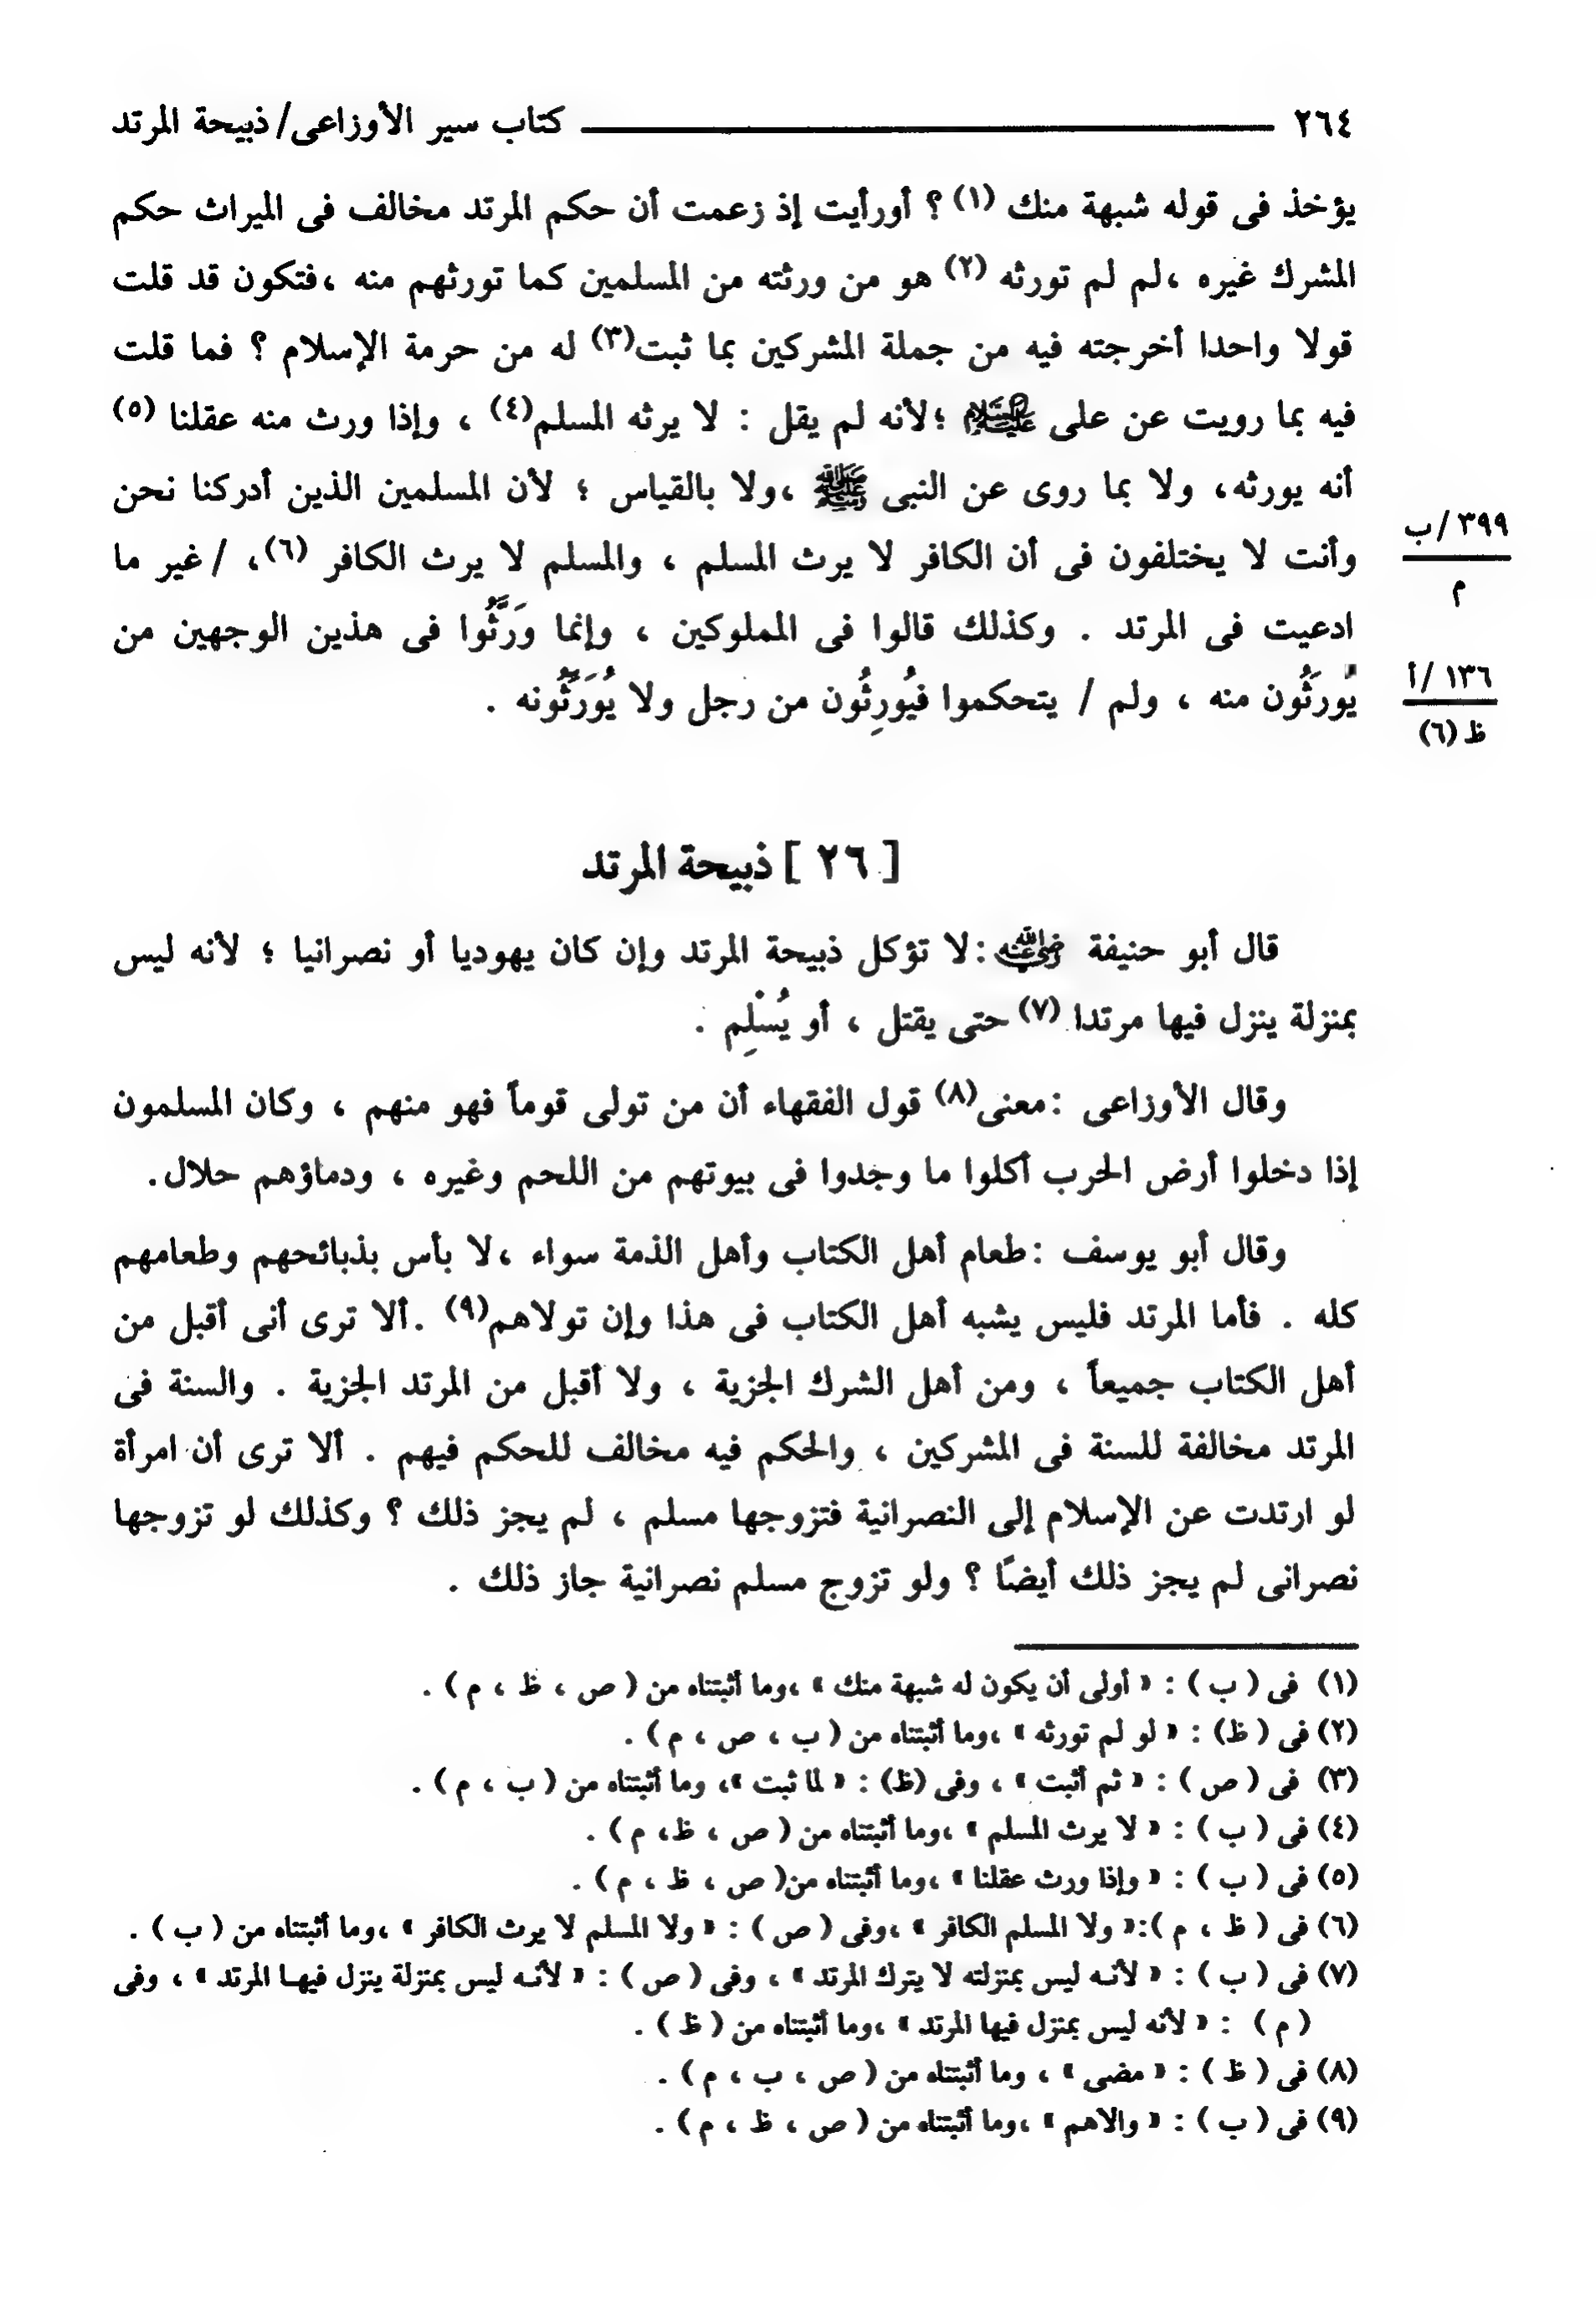 ٢٦٤ كتاب سير الأوزاعى/ ذبيحة المرتد
يؤخذ فى قوله شبهة منك (١) ؟ أورأيت إذ زعمت أن حكم المرتد مخالف فى الميراث حكم
المشرك غيره ،لم لم تورثه (٢) هو من ورثته من المسلمين كما تورثهم منه ،فتكون قد قلت
قولا واحدا أخرجته فيه من جملة المشركين بما ثبت(٣) له من حرمة الإسلام ؟ فما قلت
فيه بما رويت عن على عليه السلام ؛لأنه لم يقل : لا يرثه المسلم(٤) ، وإذا ورث منه عقلنا (٥)
أنه يورثه، ولا بما روى عن النبى ﷺ ،ولا بالقياس ؛ لأن المسلمين الذين أدركنا نحن
وأنت لا يختلفون فى أن الكافر لا يرث المسلم ، والمسلم لا يرث الكافر (٦)، / غير ما
٣٩٩/ ب
م
ادعيت فى المرتد . وكذلك قالوا فى المملوكين ، وإنما وَرَّثُوا فى هذين الوجهين من
يُورَثُون منه ، ولم / يتحكموا فيُورِثُون من رجل ولا يُوَرِّثُونه .
١٣٦/ أ
ظ (٦)
[ ٢٦ ] ذبيحة المرتد
قال أبو حنيفة رضي الله عنه :لا تؤكل ذبيحة المرتد وإن كان يهوديا أو نصرانيا ؛ لأنه ليس
بمنزلة ينزل فيها مرتدا (٧) حتى يقتل ، أو يُسْلِم .
وقال الأوزاعى :معنى(٨) قول الفقهاء أن من تولى قوماً فهو منهم ، وكان المسلمون
إذا دخلوا أرض الحرب أكلوا ما وجدوا فى بيوتهم من اللحم وغيره ، ودماؤهم حلال.
وقال أبو يوسف :طعام أهل الكتاب وأهل الذمة سواء ،لا بأس بذبائحهم وطعامهم
كله . فأما المرتد فليس يشبه أهل الكتاب فى هذا وإن تولاهم(٩) .ألا ترى أنى أقبل من
أهل الكتاب جميعاً ، ومن أهل الشرك الجزية ، ولا أقبل من المرتد الجزية . والسنة فى
المرتد مخالفة للسنة فى المشركين ، والحكم فيه مخالف للحكم فيهم . ألا ترى أن امرأة
لو ارتدت عن الإسلام إلى النصرانية فتزوجها مسلم ، لم يجز ذلك ؟ وكذلك لو تزوجها
نصرانى لم يجز ذلك أيضًا ؟ ولو تزوج مسلم نصرانية جاز ذلك .
(١) فى ( ب ) : « أولى أن يكون له شبهة منك » ،وما أثبتناه من ( ص ، ظ ، م ) .
(٢) فى ( ظ) : « لو لم تورثه » ،وما أثبتناه من ( ب ، ص ، م ) .
(٣) فى ( ص ) : « ثم أثبت » ، وفى (ظ) : « لما ثبت »، وما أثبتناه من ( ب ، م ) .
(٤) فى ( ب ) : « لا يرث المسلم » ،وما أثبتناه من ( ص ، ظ، م ) .
(٥) فى ( ب ) : « وإذا ورث عقلنا » ،وما أثبتناه من( ص ، ظ ، م ) .
(٦) فى ( ظ ، م ):« ولا المسلم الكافر » ،وفى ( ص ) : « ولا المسلم لا يرث الكافر » ،وما أثبتناه من ( ب ) .
(٧) فى ( ب ) : « لأنه ليس بمنزلته لا يترك المرتد » ، وفى ( ص ) : « لأنه ليس بمنزلة ينزل فيها المرتد » ، وفى
( م ) : « لأنه ليس بمنزل فيها المرتد » ،وما أثبتناه من ( ظ ) .
(٨) فى ( ظ ) : « مضى » ، وما أثبتناه من ( ص ، ب ، م ) .
(٩) فى ( ب ) : « والاهم » ،وما أثبتناه من ( ص ، ظ ، م ) .